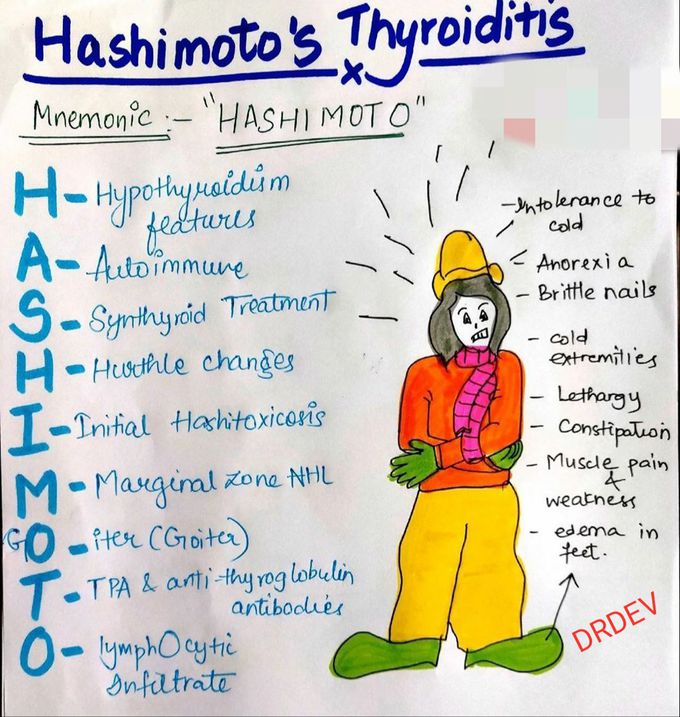 Hashimoto's Thyroiditis
x
Mnemonic :- "HASHIMOTO"
H - Hypothyroidism
features
A - Autoimmune
S - Synthyroid Treatment
H - Hurthle changes
I - Initial Hashitoxicosis
M - Marginal zone NHL
GO - iter (Goiter)
T - TPA & anti-thyroglobulin
antibodies
O - lymphOcytic
Infiltrate
- Intolerance to
cold
- Anorexia
- Brittle nails
- cold
extremilies
- Lethargy
- Constipation
- Muscle pain
&
weakness
- edema in
feet.
DRDEV